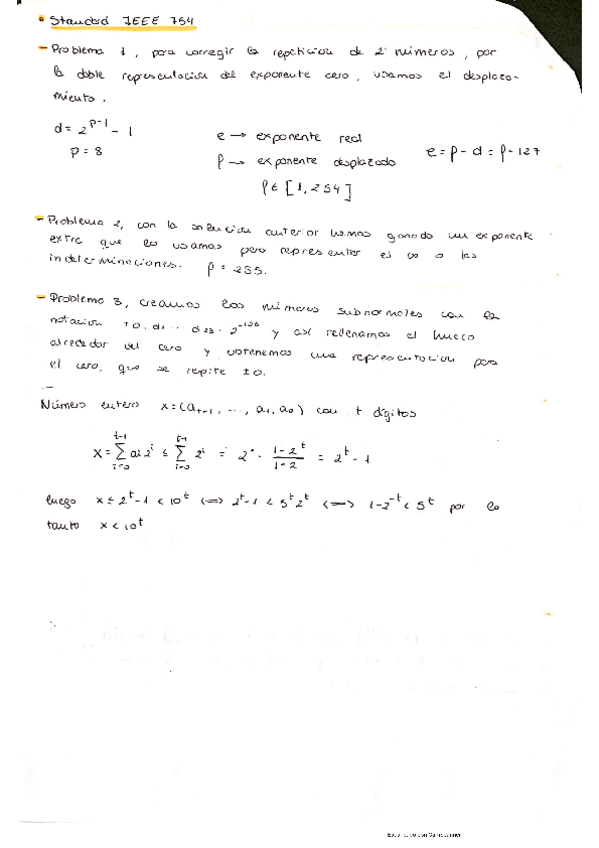 • Standard IEEE 754
- Problema 1, para corregir la repetición de 2 números, por
la doble representación del exponente cero, usamos el desplaza-
miento.
d = 2^{p-1} - 1
p = 8
e → exponente real
p → exponente desplazado
p ∈ [1, 254]
e = p - d = p - 127
- Problema 2, con la solución anterior hemos ganado un exponente
extra que lo usamos para representar el ∞ o las
indeterminaciones. p = 255.
- Problema 3, creamos los números subnormales con la
notación ±0. d_1 ... d_{23} · 2^{-126} y así rellenamos el hueco
alrededor del cero y obtenemos una representación para
el cero, que se repite ±0.
Número entero x = (a_{t-1}, ..., a_1, a_0) con t dígitos
x = \sum_{i=0}^{t-1} a_i 2^i ≤ \sum_{i=0}^{t-1} 2^i = 2^0 · \frac{1-2^t}{1-2} = 2^t - 1
luego x ≤ 2^t - 1 < 10^t <=> 2^t - 1 < 5^t 2^t <=> 1 - 2^{-t} < 5^t por lo
tanto x < 10^t